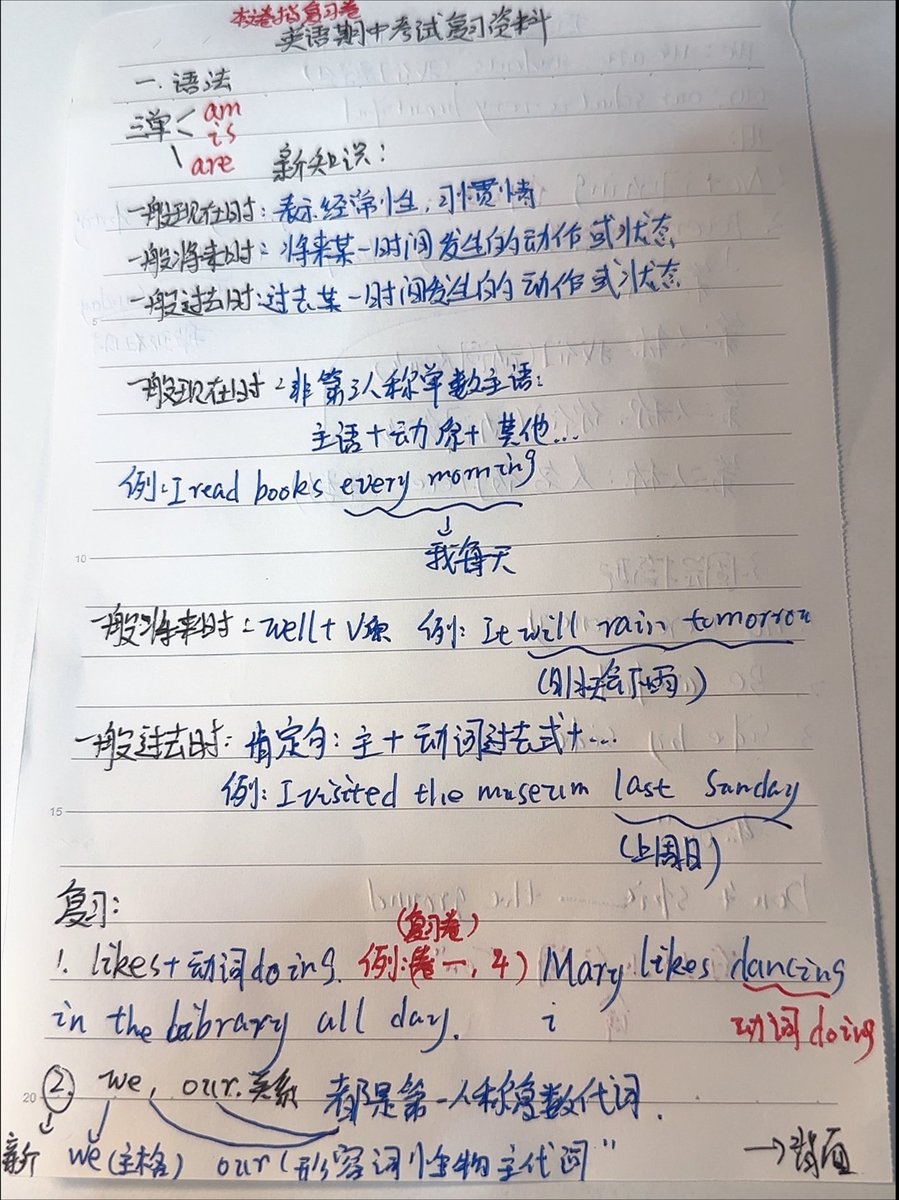 本卷指复习卷
英语期中考试复习资料
一. 语法
三单 am
is
are 新知识:
一般现在时: 表示经常性, 习惯情
一般将来时: 将来某一时间发生的动作或状态
一般过去时: 过去某一时间发生的动作或状态
5
一般现在时: 非第三人称单数主语:
主语+动原+其他...
例: I read books every morning
↓
10
我每天
一般将来时: well+V原 例: It will rain tomorrow
(明天会下雨)
一般过去时: 肯定句: 主+动词过去式+...
例: I visited the museum last Sunday
15
(上周日)
复习:
(复习卷)
1. likes+动词doing. 例:(卷一, 4) Mary likes dancing
in the library all day. i 动词doing
20 2. we, our.关系 都是第一人称复数代词.
新 we(主格) our(形容词性物主代词" →背面